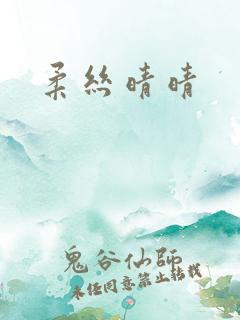 柔絲晴晴
鬼谷仙師
未经同意禁止转载